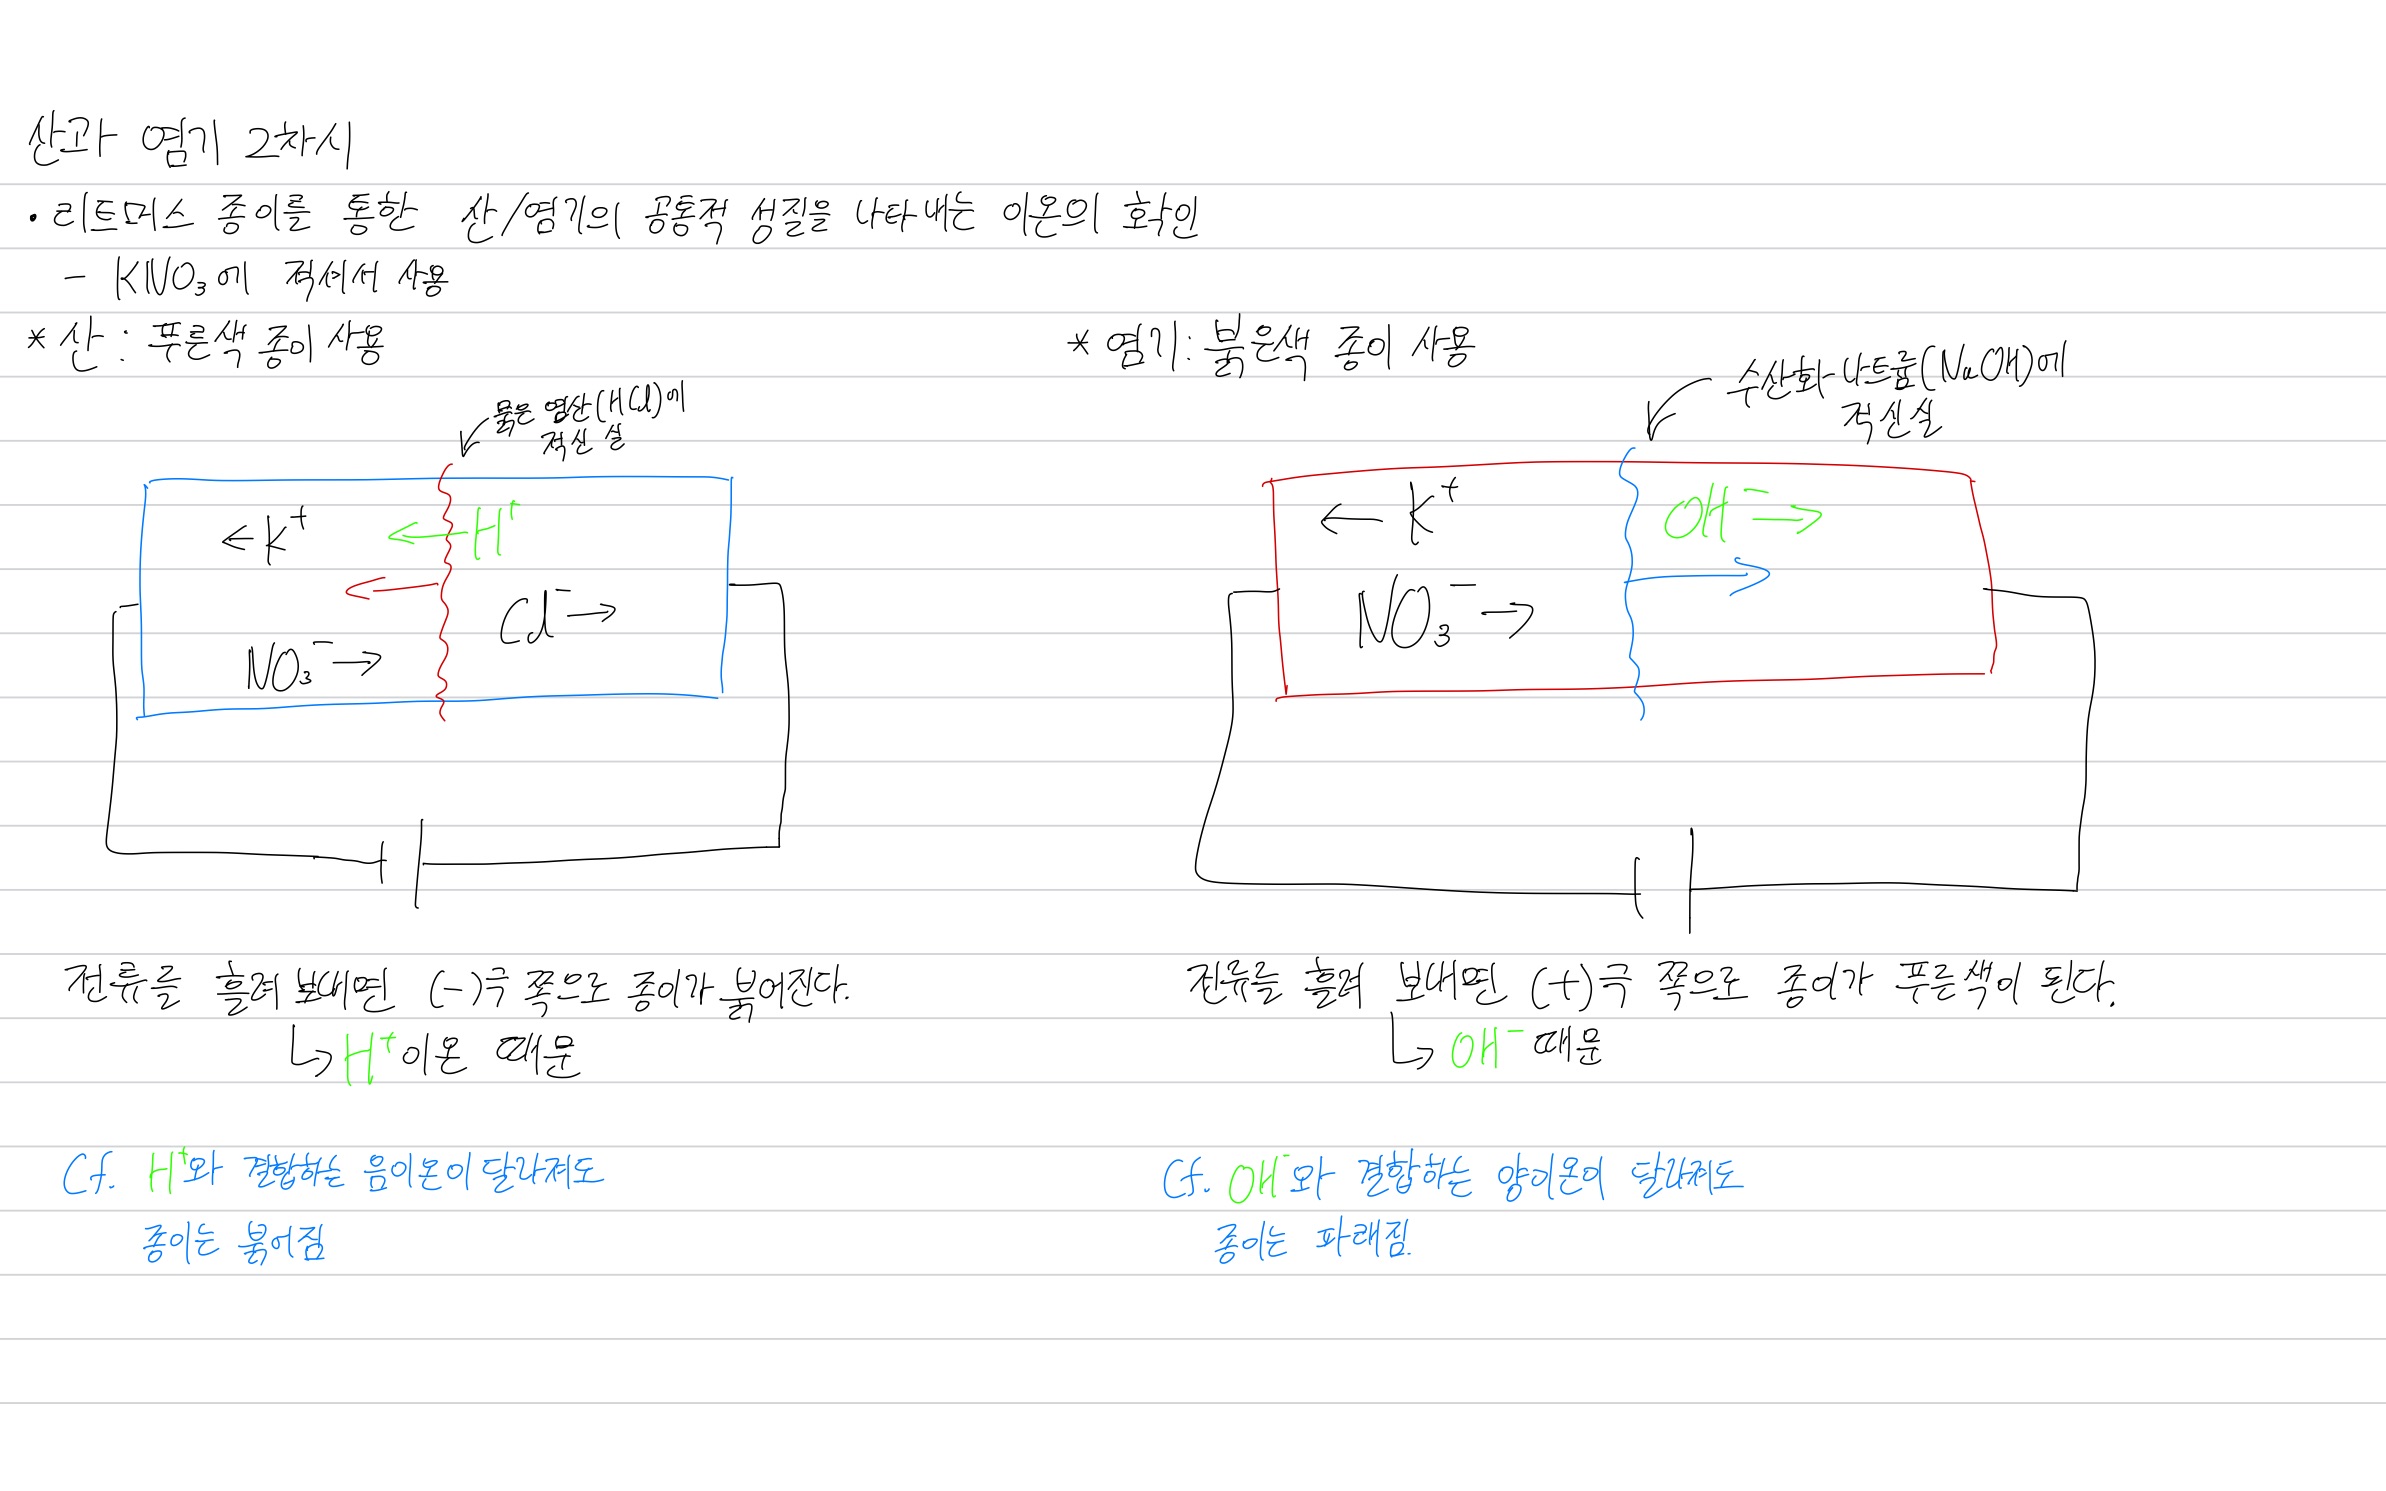 산과 염기 2차시
• 리트머스 종이를 통한 산/염기의 공통적 성질을 나타내는 이온의 확인
- KNO₃에 적셔서 사용
* 산 : 푸른색 종이 사용
묽은 염산(HCl)에
적신 실
K⁺
H⁺
Cl⁻
NO₃⁻
전류를 흘려 보내면 (-)극 쪽으로 종이가 붉어진다.
H⁺이온 때문
Cf. H⁺와 결합하는 음이온이 달라져도
종이는 붉어짐
* 염기 : 붉은색 종이 사용
수산화 나트륨(NaOH)에
적신실
K⁺
OH⁻
NO₃⁻
전류를 흘려 보내면 (+)극 쪽으로 종이가 푸른색이 된다.
OH⁻ 때문
Cf. OH⁻와 결합하는 양이온이 달라져도
종이는 파래짐.